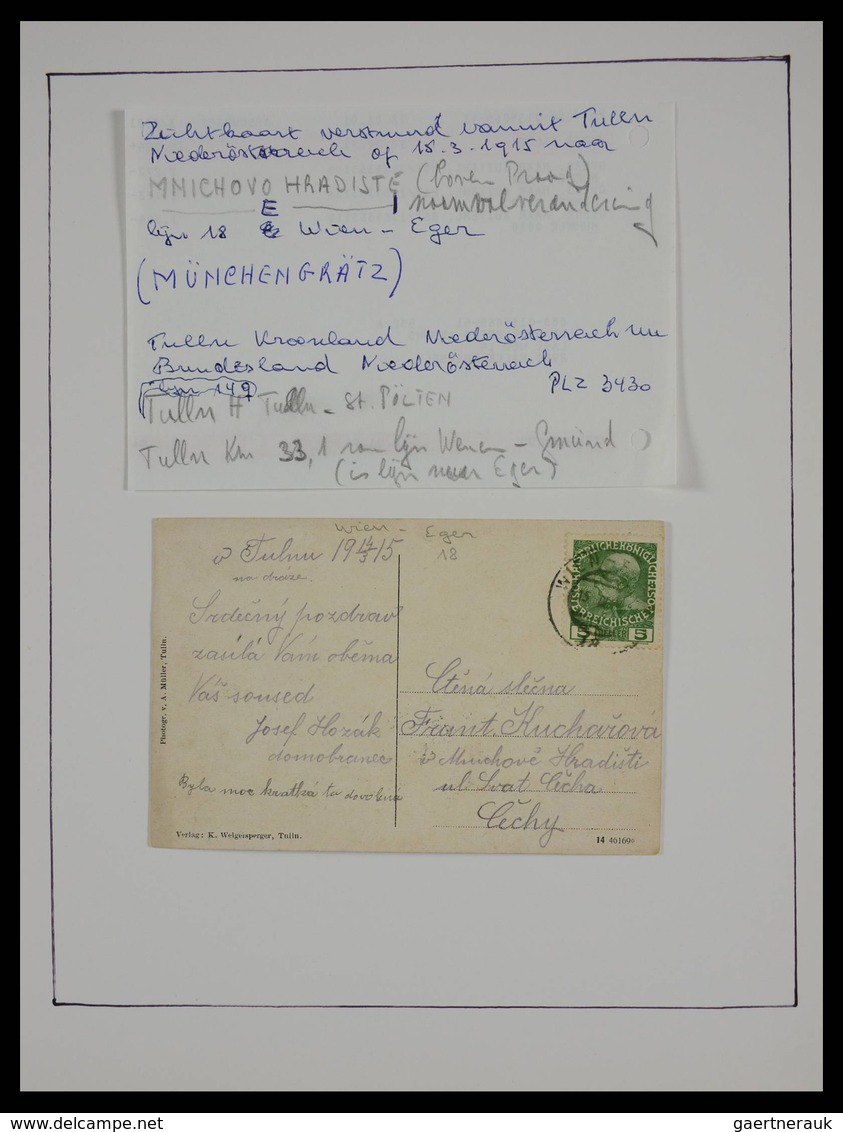 Zichtkaart verstuurd vanuit Tulln
Niederösterreich op 15.3.1915 naar
MNICHOVO HRADISTE (boven Praag)
E I naamvalverandering
lijn 18 Wien - Eger
(MÜNCHENGRÄTZ)
Tulln Kroonland Niederösterreich nu
Bundesland Niederösterreich
lijn 149 PLZ 3430
Tulln H Tulln - St. PÖLTEN
Tulln Km 33,1 van lijn Wenen - Gmünd
(is lijn naar Eger)
Wien - Eger
18
v Tulnu 19 14/3 15
na dráze.
Srdečný pozdrav
zasílá Vám oběma
Váš soused
Josef Hozák
domobranec
Byla moc kratká ta dovolená
Photogr. v. A. Müller, Tulln.
Verlag: K. Welgeisperger, Tulln.
KAISERLICHE KÖNIGLICHE
ÖSTERREICHISCHE
5 HELLER 5
Ctěná slečna
Frant. Kuchařová
v Mnichově Hradišti
ul. Svat. Čecha
Čechy
14 46169
delcampe.net
gaertnerauk